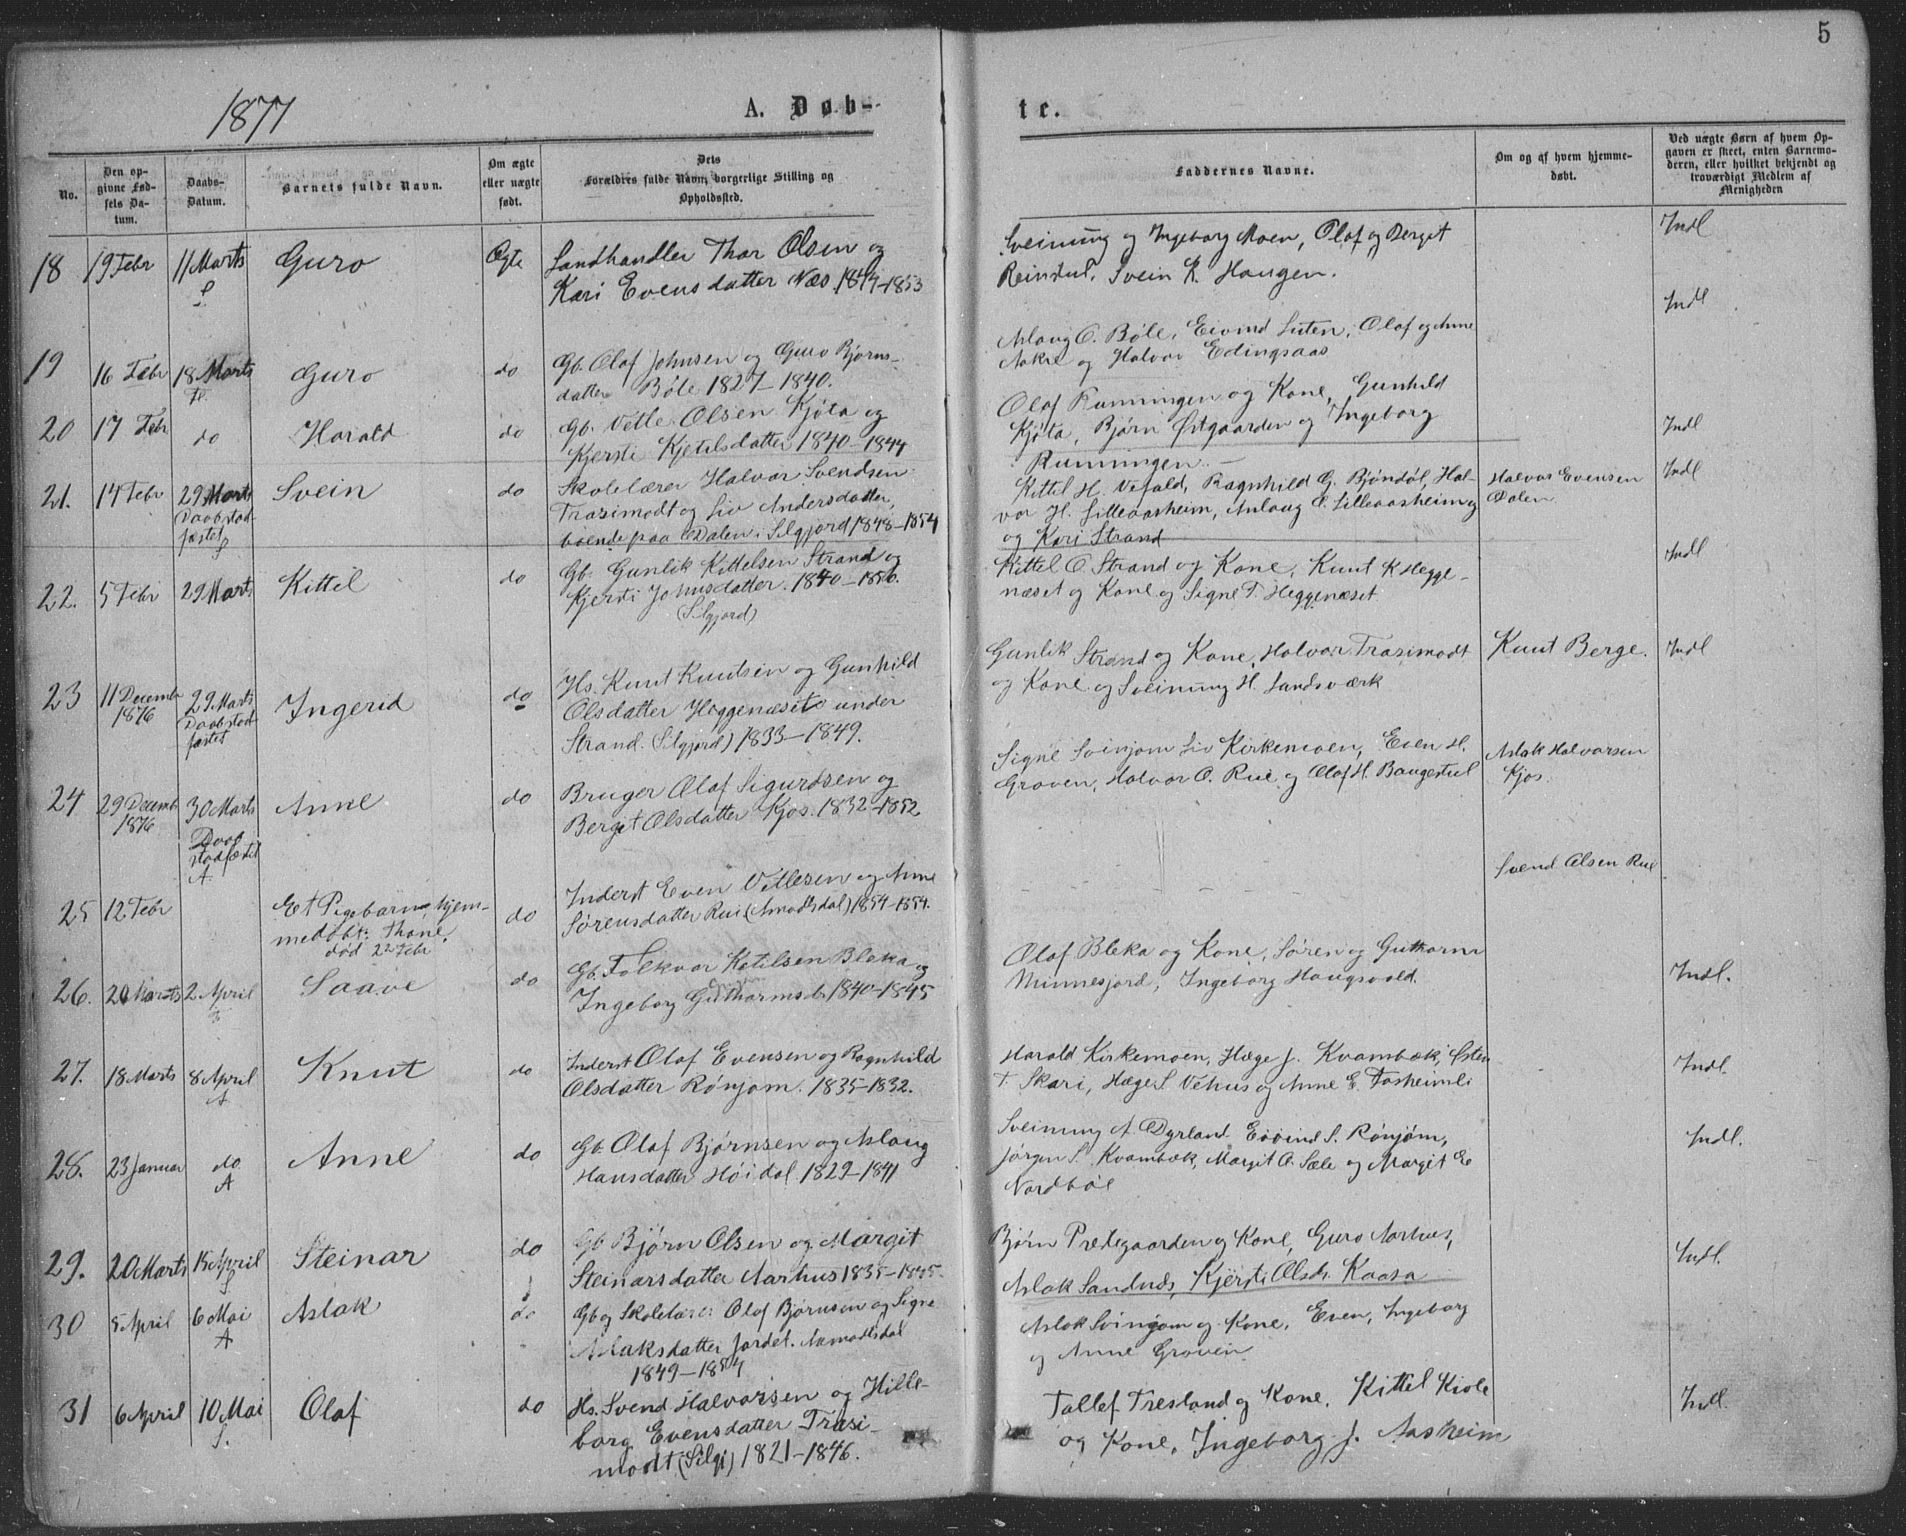 5
1877
A. Døb-
te.
No.
Den op-
givne Fød-
sels Da-
tum.
Daabs-
Datum.
Barnets fulde Navn.
Om ægte
eller uægte
født.
Dets
Forældres fulde Navn, borgerlige Stilling og
Opholdssted.
Faddernes Navne.
Om og af hvem hjemme-
døbt.
Ved uægte Børn af hvem Op-
gaven er skeet, enten Barnemo-
deren, eller hvilket bekjendt og
troværdigt Medlem af
Menigheden
18 19 Febr 11 Marts Guro Ægte Landhandler Thor Olsen og
S. Kari Evensdatter Næs. 1844-1853
Sveinung og Ingeborg Moen, Olaf og Berget Indl
Reinstul. Svein K. Haugen.
Indl
19 16 Febr 18 Marts Guro do Gb. Olaf Johnsen og Guro Bjørns-
Fl. datter Bøle 1827-1840.
Aslaug O. Bøle, Eivind Luten, Olaf og Anne
Aakre og Halvor Edingsaas
20 17 Febr do Harald do Gb. Vetle Olsen Kjøta og
Kjersti Kjetilsdatter 1840-1844
Olaf Runningen og Kone, Gunhild
Kjøta, Bjørn Østgaarden og Ingeborg Indl
Runningen.
21. 14 Febr 29 Marts Svein do Skolelærer Halvor Svendsen
Daabstad- Trasimodt og Liv Andersdatter,
fæstet boende paa Dalen i Silgjord 1848-1854
S
Kittel H. Vefald, Ragnhild G. Bjøndøl, Hal- Halvor Evensen Indl
vor H. Lilleaasheim, Aslaug O. Lilleaasheim og Dalen
og Kari Strand
22. 5 Febr 29 Marts Kittil do Gb. Gunlik Kittelsen Strand og
Kjersti Johnsdatter. 1840-1856.
(Silgjord)
Kittel O. Strand og Kone, Knut K Hegge- Indl
næset og Kone og Signe T. Heggenæset
23 11 Decembr 29 Marts Ingerid do Hs. Knut Knutsen og Gunhild
1876 Daabstad- Olsdatter Heggenæset under
fæstet Strand. (Silgjord) 1833-1849.
Gunlik Strand og Kone, Halvor Trasimodt Knut Berge. Indl
og Kone og Sveinung H. Landsværk
24 29 Decemb 30 Marts Anne do Bruger Olaf Sigurdsen og
1876 Daab Berget Olsdatter Kjos. 1832-1852
stadfæstet
A
Signe Svinjom Liv Kirkemoen, Even H. Aslak Halvorsen
Groven, Halvor O. Rue og Olaf H. Baugestul Kjos.
25 12 Febr Et Pigebarn, hjem- do Inderst Even Vetlesen og Anne
medøbt: Thone, Sørensdatter Rui (Amodtsdal) 1854-1854.
død 22 Febr
Svend Olsen Rue
26. 20 Marts 2 April Saave do Gb. Folkvor Ketilsen Bleka og
Ingeborg Guthormsd. 1840-1845
Olaf Bleka og Kone, Søren og Guthorm Indl.
Minnesjord, Ingeborg Haugsvold.
27. 18 Marts 8 April Knut do Inderst Olaf Evensen og Ragnhild
A Olsdatter Rønjom. 1835-1832.
Harald Kirkemoen, Hæge J. Kvambæk, Østen Indl.
T. Skari, Hæge S. Vehus og Anne E. Tosheimli
28. 23 Januar do Anne do Gb Olaf Bjørnsen og Aslaug
A Hansdatter Høidal 1829-1841
Sveinung A. Dyrland, Eivind S. Rønjøm, Indl.
Jørgen S. Kvambæk, Margit O. Sæle og Margit E
Nordbøe
29. 20 Marts 15 April Steinar do Gb Bjørn Olsen og Margit
S Steinarsdatter Aarhus 1835-1845.
Bjørn Prestegaarden og Kone, Guro Aarhus, Indl.
Aslak Sandnes, Kjersti Olsdr. Kaasa
30 5 April 6 Mai Aslak do Gb og Skolelærer Olaf Bjørnsen og Signe
A Aslaksdatter Jordet. Aamodtsdal
1849-1854
Aslak Svinjom og Kone, Even, Ingeborg
og Anne Groven
31 6 April 10 Mai Olaf do Hs. Svend Halvorsen og Hille-
S. borg Evensdatter Trasi-
modt (Silgj) 1821-1846.
Tallef Tresland og Kone, Kittel Kivle Indl.
og Kone, Ingeborg J. Aasheim